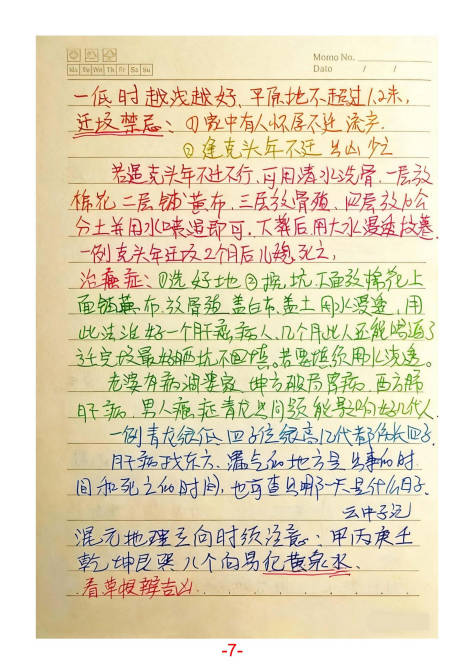 Memo No.
Mo Tu We Th Fr Sa Su
Date / /
一低时越浅越好、平原地不超过1.2米,
迁坟禁忌：①家中有人怀孕不迁 流产.
②逢克头年不迁 出凶 少亡
若逢克头年不迁不行,可用清水洗骨,一层放
棉花 二层铺黄布,三层放骨殖,四层放
分土并用水喷湿即可.下葬后用大水浸透坟墓.
一例克头年迁坟2个月后儿媳死亡,
治癌症：①选好地②挖坑,下面放棉花上
面铺黄布,放骨殖 盖白布,盖土 用水浸透,用
此法治好一个肝癌病人,几个月此人还能
迁完坟最好晒坑不回填。若要填须用水浇透。
老婆有病 坤方破局胃病,西方肺
肝病,男人癌症青龙 能影响好几代人.
一例青龙很低 四子位很高几代都伤长四子.
肝病找东方.漏气的地方是出事的时
间和死亡的时间,也可查出哪一天是什么日子.
云中子记
混元地理立向时须注意：甲丙庚壬
乾坤艮巽 八个向易犯黄泉水.
看草根辨吉凶
-7-